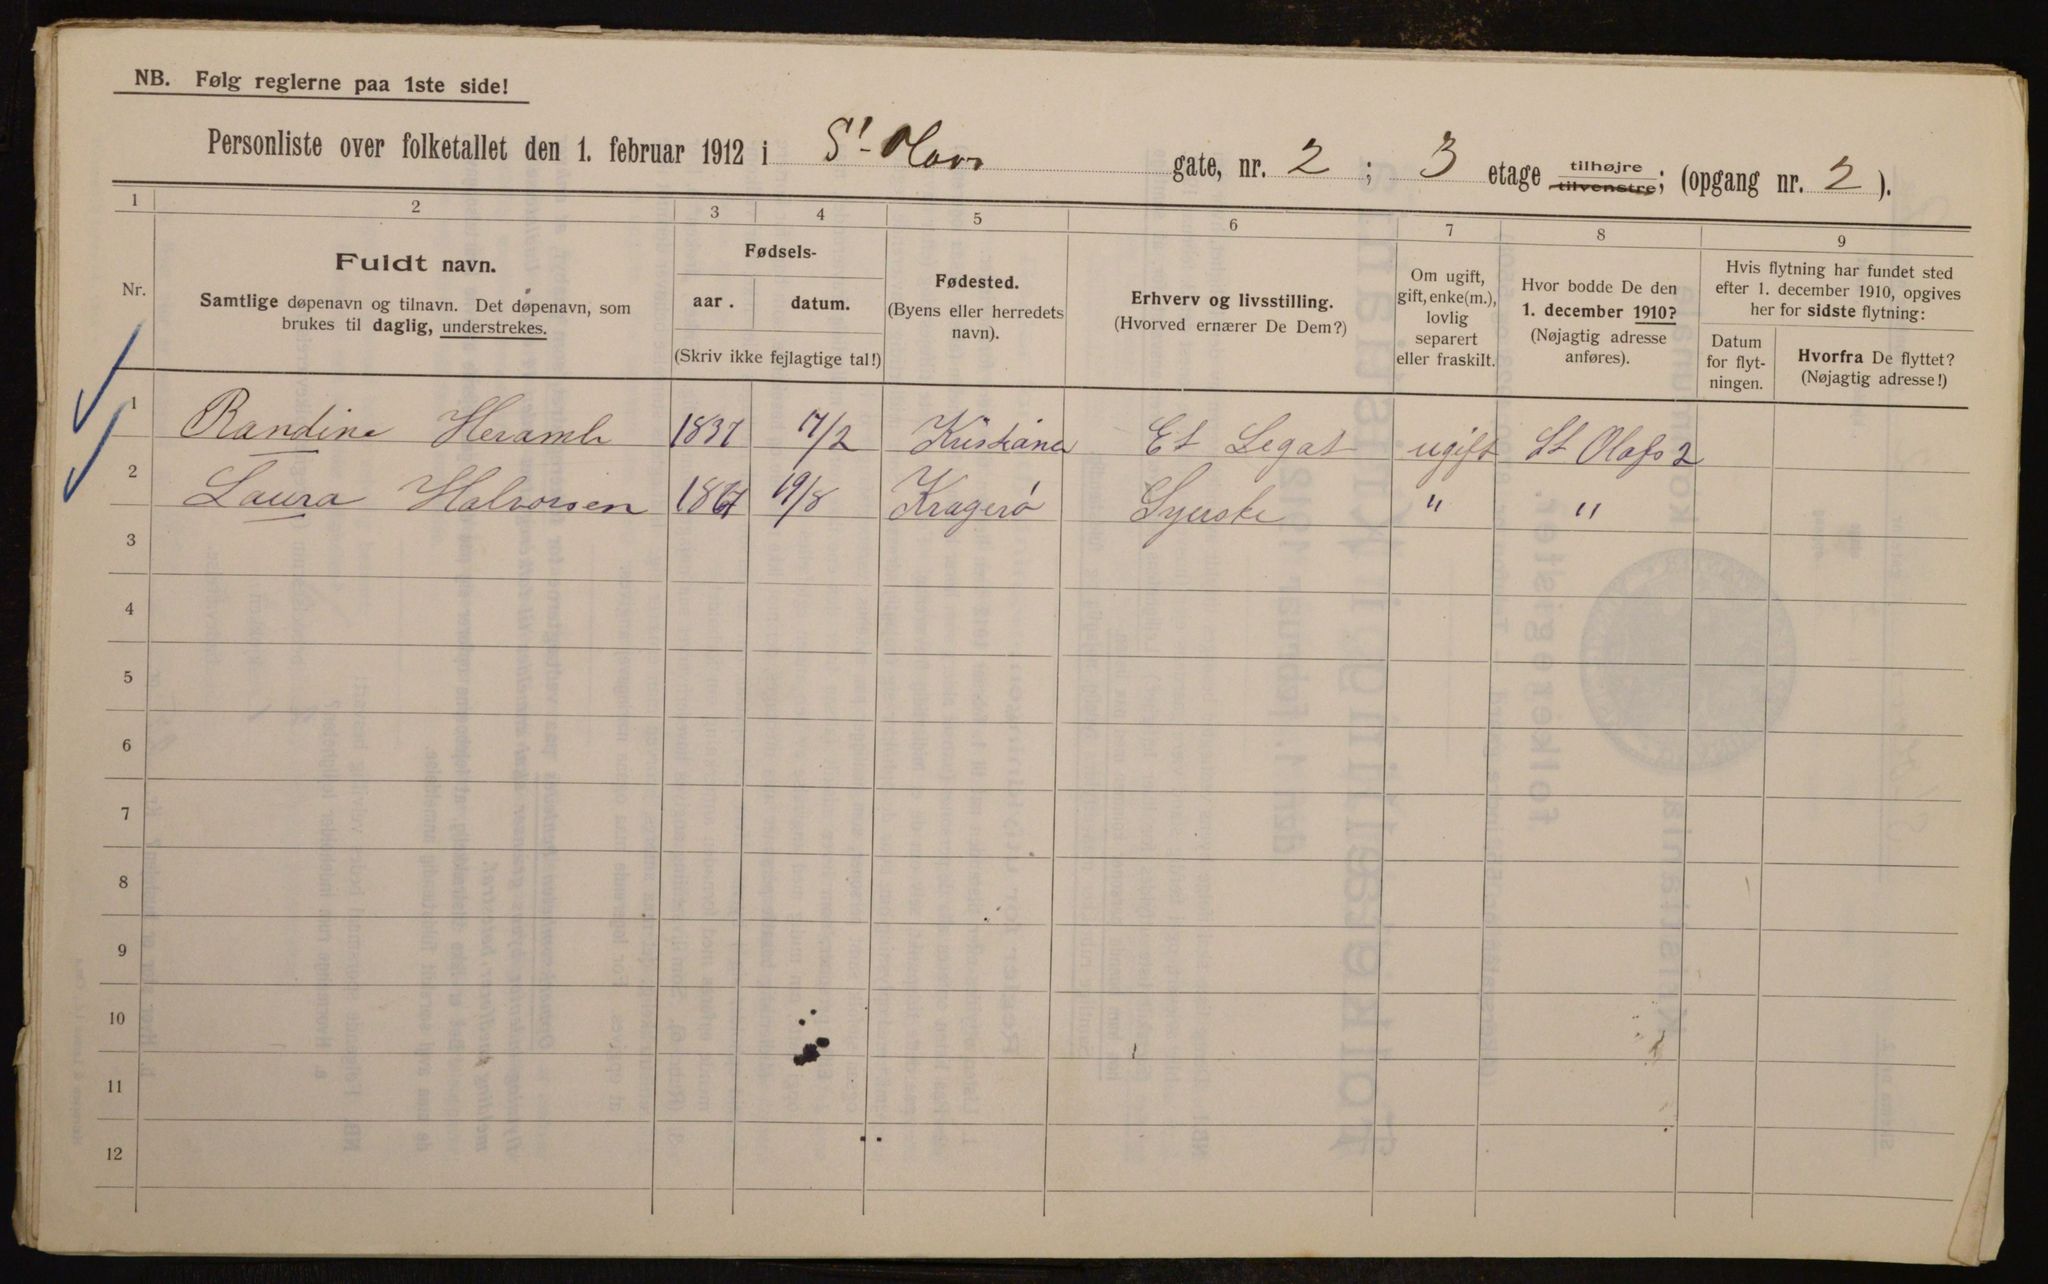 NB. Følg reglerne paa 1ste side!
Personliste over folketallet den 1. februar 1912 i St. Olavs gate, nr. 2 ; 3 etage tilhøjre tilvenstre; (opgang nr. 2 ).
1 2 3 4 5 6 7 8 9
Nr. Fuldt navn.
Samtlige døpenavn og tilnavn. Det døpenavn, som
brukes til daglig, understrekes.
Fødsels-
aar. datum.
(Skriv ikke fejlagtige tal!)
Fødested.
(Byens eller herredets
navn).
Erhverv og livsstilling.
(Hvorved ernærer De Dem?)
Om ugift,
gift, enke(m.),
lovlig
separert
eller fraskilt.
Hvor bodde De den
1. december 1910?
(Nøjagtig adresse
anføres).
Hvis flytning har fundet sted
efter 1. december 1910, opgives
her for sidste flytning:
Datum
for flyt-
ningen.
Hvorfra De flyttet?
(Nøjagtig adresse!)
1 Randine Heramb 1837 17/2 Kristiania Et Legat ugift St Olafs 2
2 Laura Halvorsen 1867 19/8 Kragerø Syerske " "
3
4
5
6
7
8
9
10
11
12